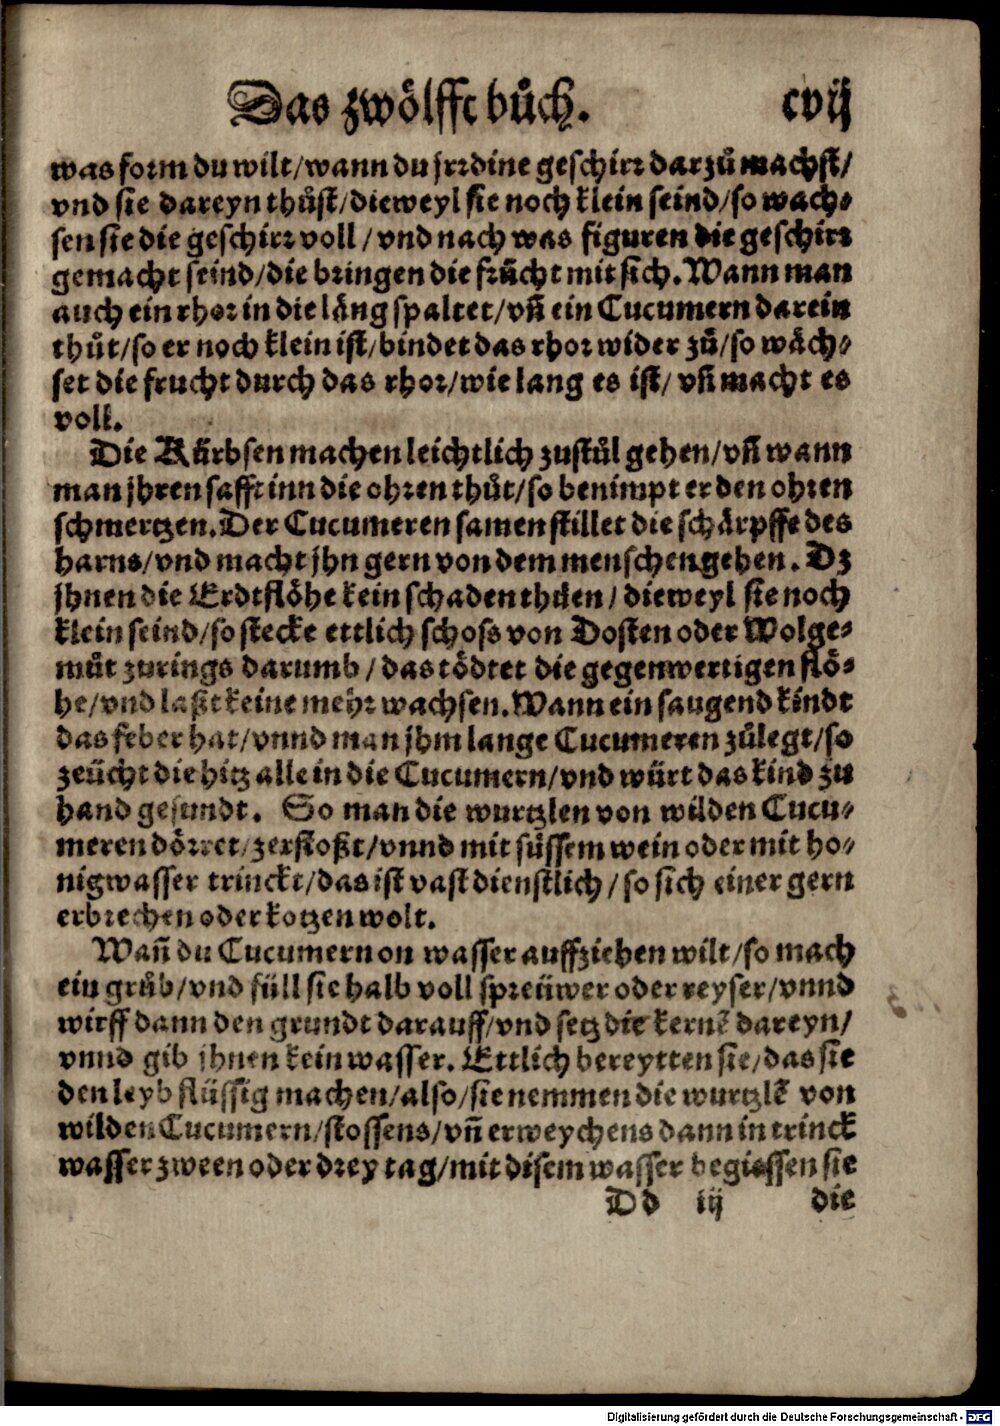 Das zwölfft bůch. cvij
was form du wilt/wann du jrrdine geschirr darzů machst/
vnd sie dareyn thůst/dieweyl sie noch klein seind/so wach-
sen sie die geschirr voll/vnd nach was figuren die geschirr
gemacht seind/die bringen die frücht mit sich. Wann man
auch ein rhor in die läng spaltet/vñ ein Cucumern darein
thůt/so er noch klein ist/bindet das rhor wider zů/so wäch-
set die frucht durch das rhor/wie lang es ist/vñ macht es
voll.
Die Kürbsen machen leichtlich zustůl gehen/vñ wann
man jhren safft inn die ohren thůt/so benimpt er den ohren
schmertzen. Der Cucumeren samen stillet die schärpffe des
harns/vnd macht jhn gern von dem menschen gehen. Dz
jhnen die Erdtflöhe kein schaden thüen/dieweyl sie noch
klein seind/so stecke ettlich schoss von Dosten oder Wolge-
můt zurings darumb/das tödtet die gegenwertigen flö-
he/vnd laßt keine mehr wachsen. Wann ein saugend kindt
das feber hat/vnnd man jhm lange Cucumeren zůlegt/so
zeücht die hitz alle in die Cucumern/vnd würt das kind zu
hand gesundt. So man die wurtzlen von wilden Cucu-
meren dörret/zerstoßt/vnnd mit süssem wein oder mit ho-
nigwasser trinckt/das ist vast dienstlich/so sich einer gern
erbrechen oder kotzen wolt.
Wañ du Cucumern on wasser auffziehen wilt/so mach
ein grůb/vnd füll sie halb voll spreüwer oder reyser/vnnd
wirff dann den grundt darauff/vnd setz die kernẽ dareyn/
vnnd gib jhnen kein wasser. Ettlich bereytten sie/das sie
den leyb flüssig machen/also/sie nemmen die wurtzlẽ von
wilden Cucumern/stossens/vñ erweychens dann in trinck
wasser zween oder drey tag/mit disem wasser begiessen sie
Dd iij die
Digitalisierung gefördert durch die Deutsche Forschungsgemeinschaft - DFG